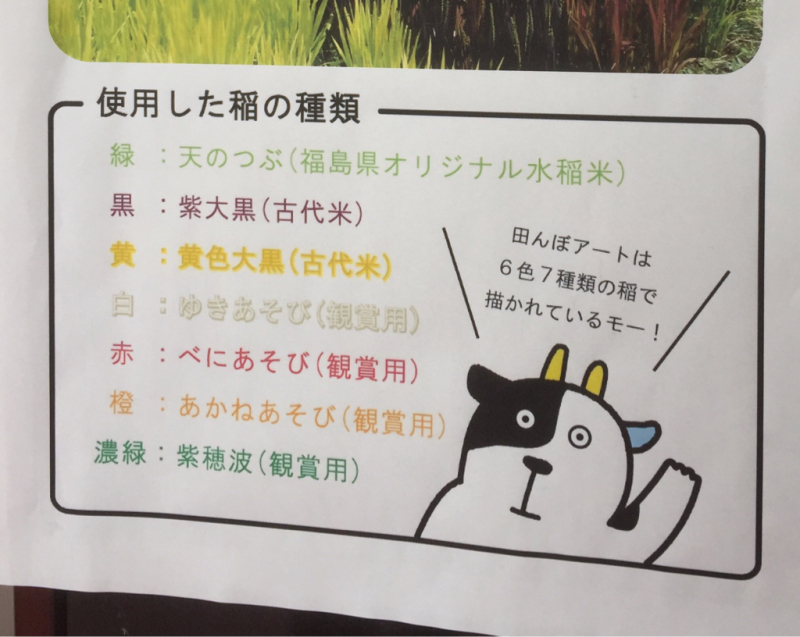 使用した稲の種類
緑 ：天のつぶ(福島県オリジナル水稲米)
黒 ：紫大黒(古代米)
黄 ：黄色大黒(古代米)
白 ：ゆきあそび(観賞用)
赤 ：べにあそび(観賞用)
橙 ：あかねあそび(観賞用)
濃緑：紫穂波(観賞用)
田んぼアートは
６色７種類の稲で
描かれているモー！